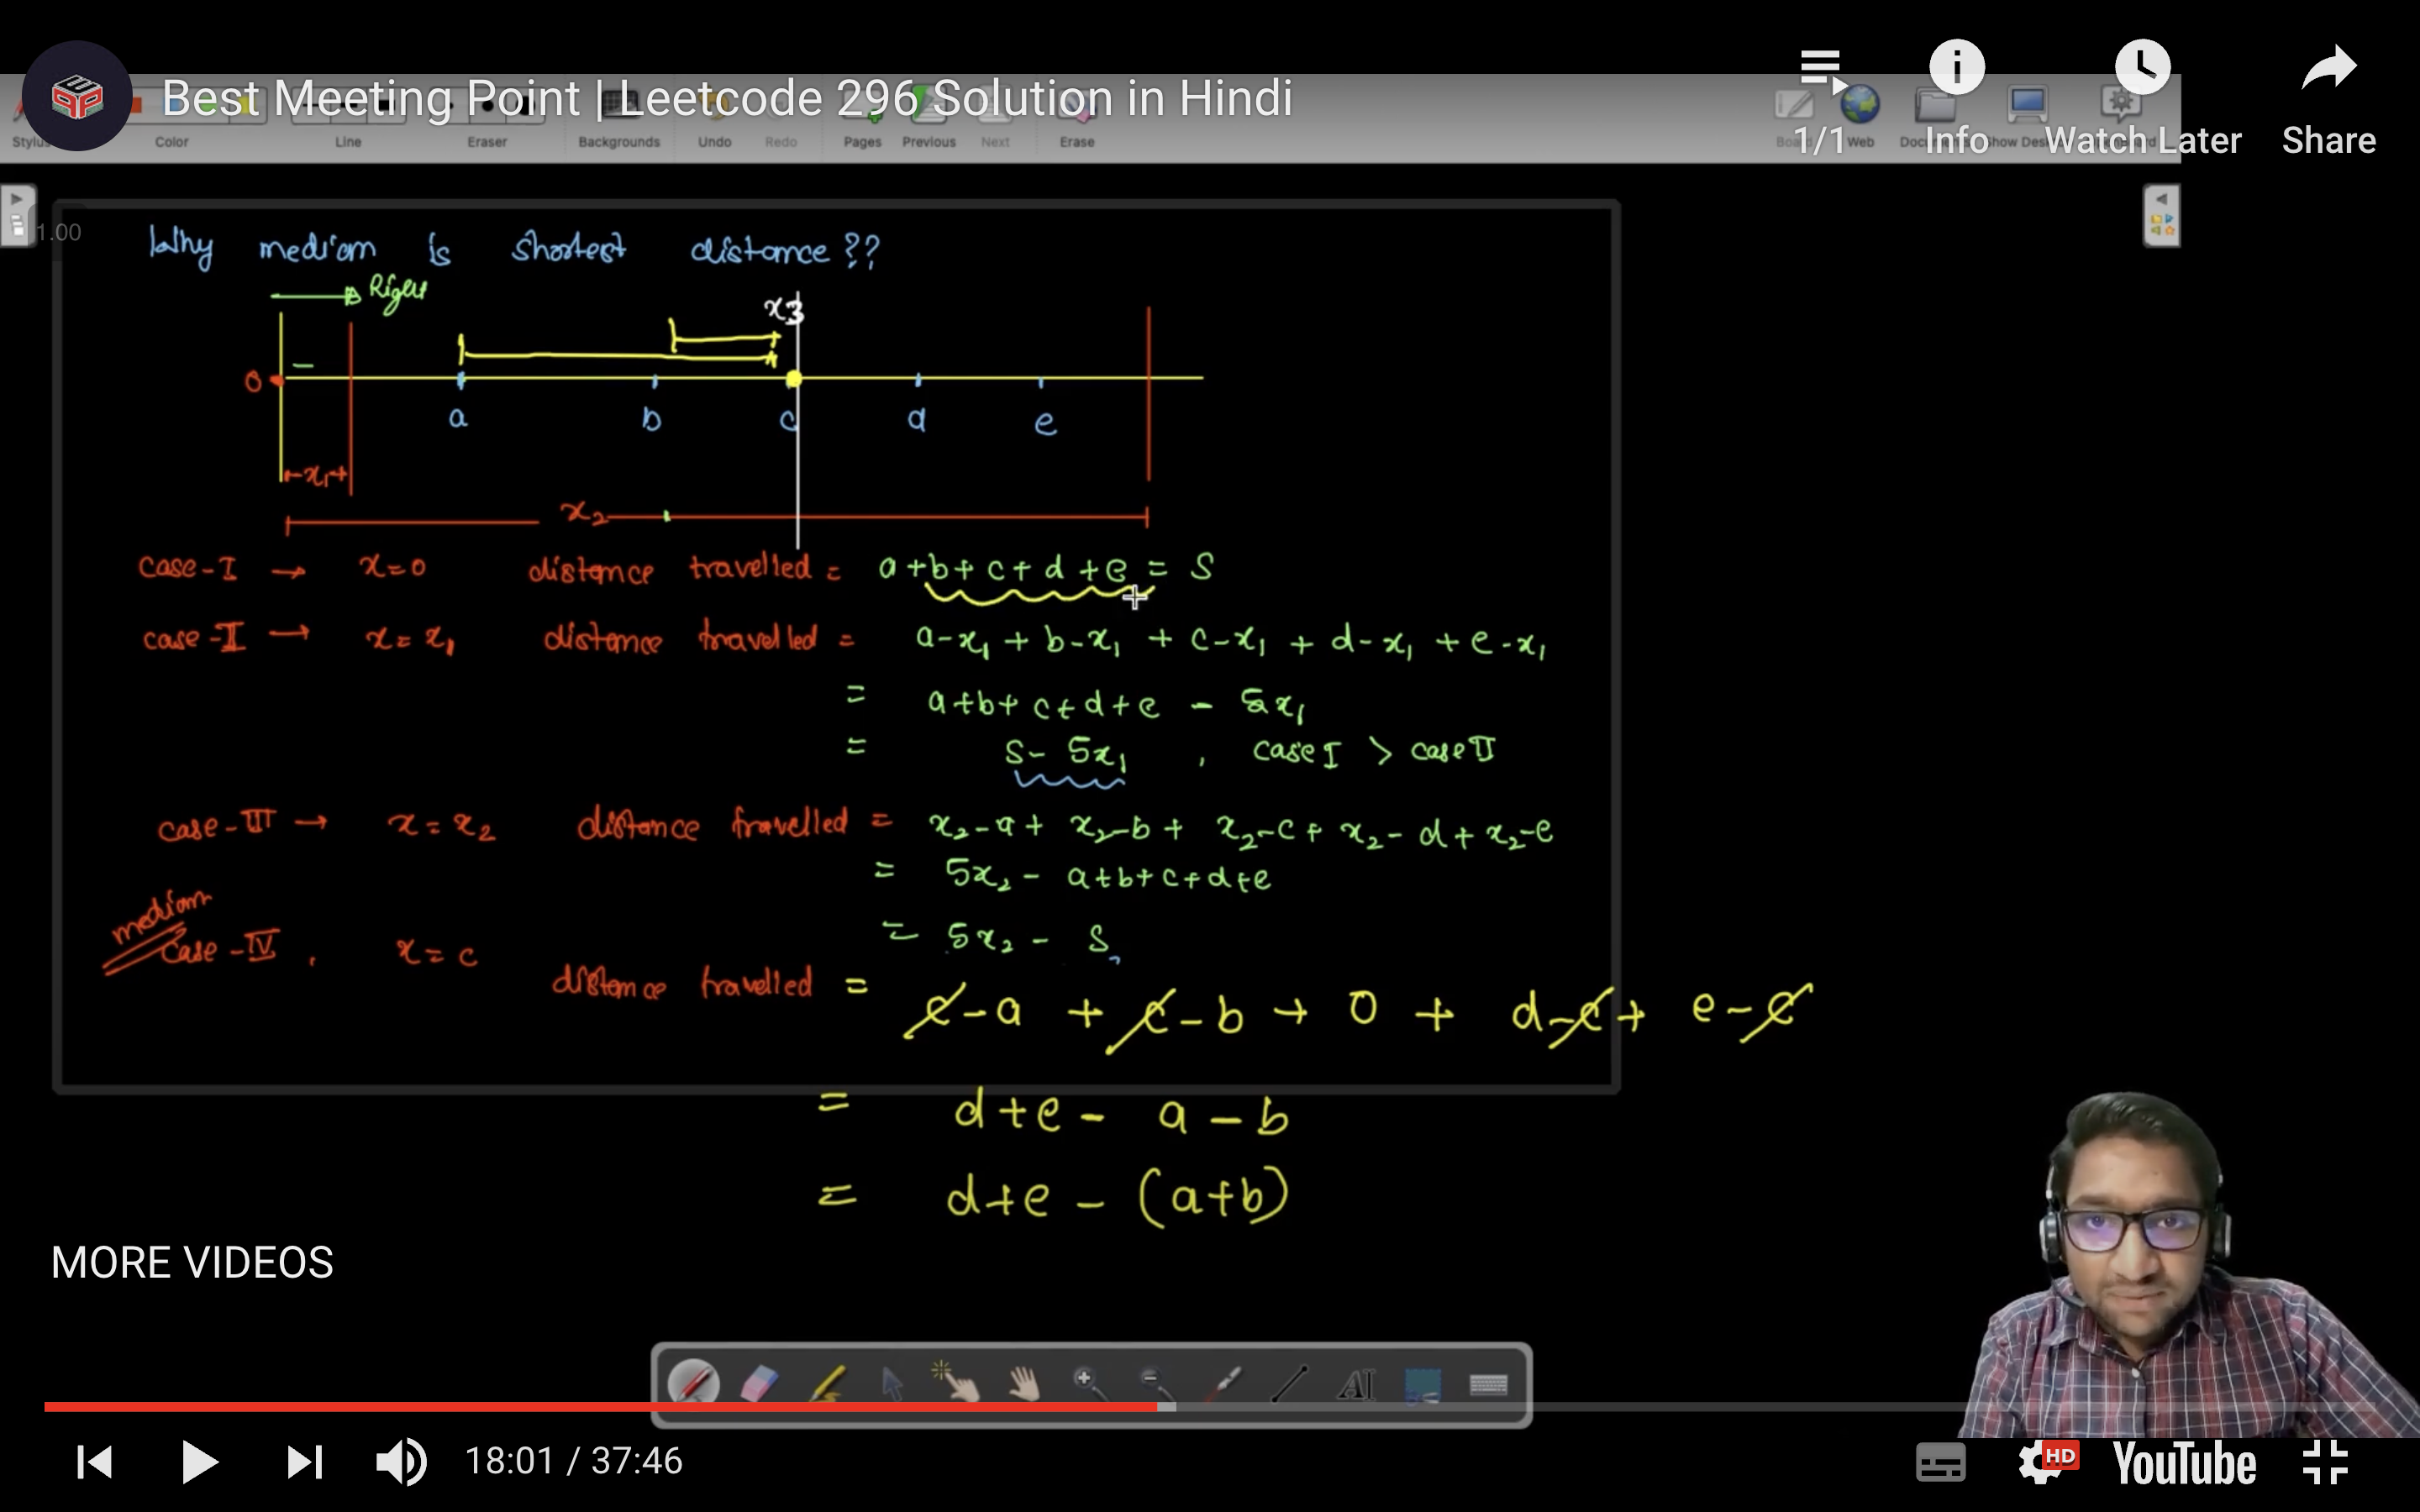 Best Meeting Point | Leetcode 296 Solution in Hindi
1/1 Info Watch Later Share
Stylus Color Line Eraser Backgrounds Undo Redo Pages Previous Next Erase Web
1.00
Why median is shortest distance??
Right
x3
0
a b c d e
x₁
x₂
case-I → x=0 distance travelled = a+b+c+d+e = S
case-II → x=x₁ distance travelled = a-x₁ + b-x₁ + c-x₁ + d-x₁ + e-x₁
= a+b+c+d+e - 5x₁
= S- 5x₁ , case I > case II
case-III → x=x₂ distance travelled = x₂-a+ x₂-b+ x₂-c+ x₂-d+ x₂-e
= 5x₂ - a+b+c+d+e
= 5x₂ - S
median
case-IV , x=c distance travelled = c-a + c-b + 0 + d-c + e-c
= d+e - a-b
= d+e - (a+b)
MORE VIDEOS
AI
18:01 / 37:46
HD
YouTube